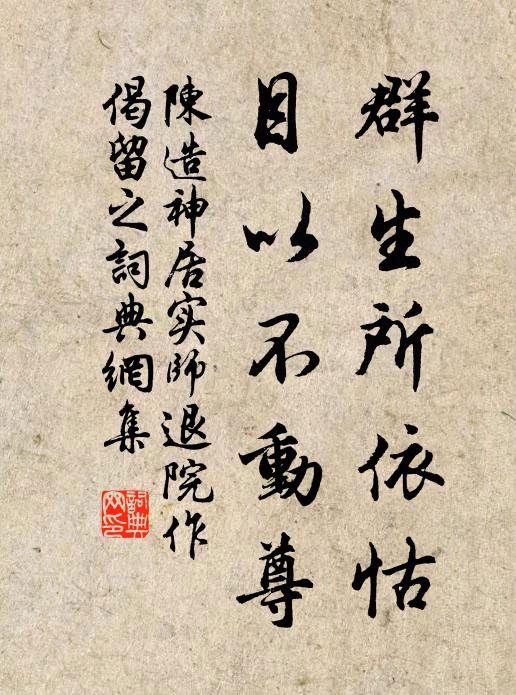 群生所依怙
目以不動尊
陳造神居实師退院作
偈留之詞典網集
詞典网印